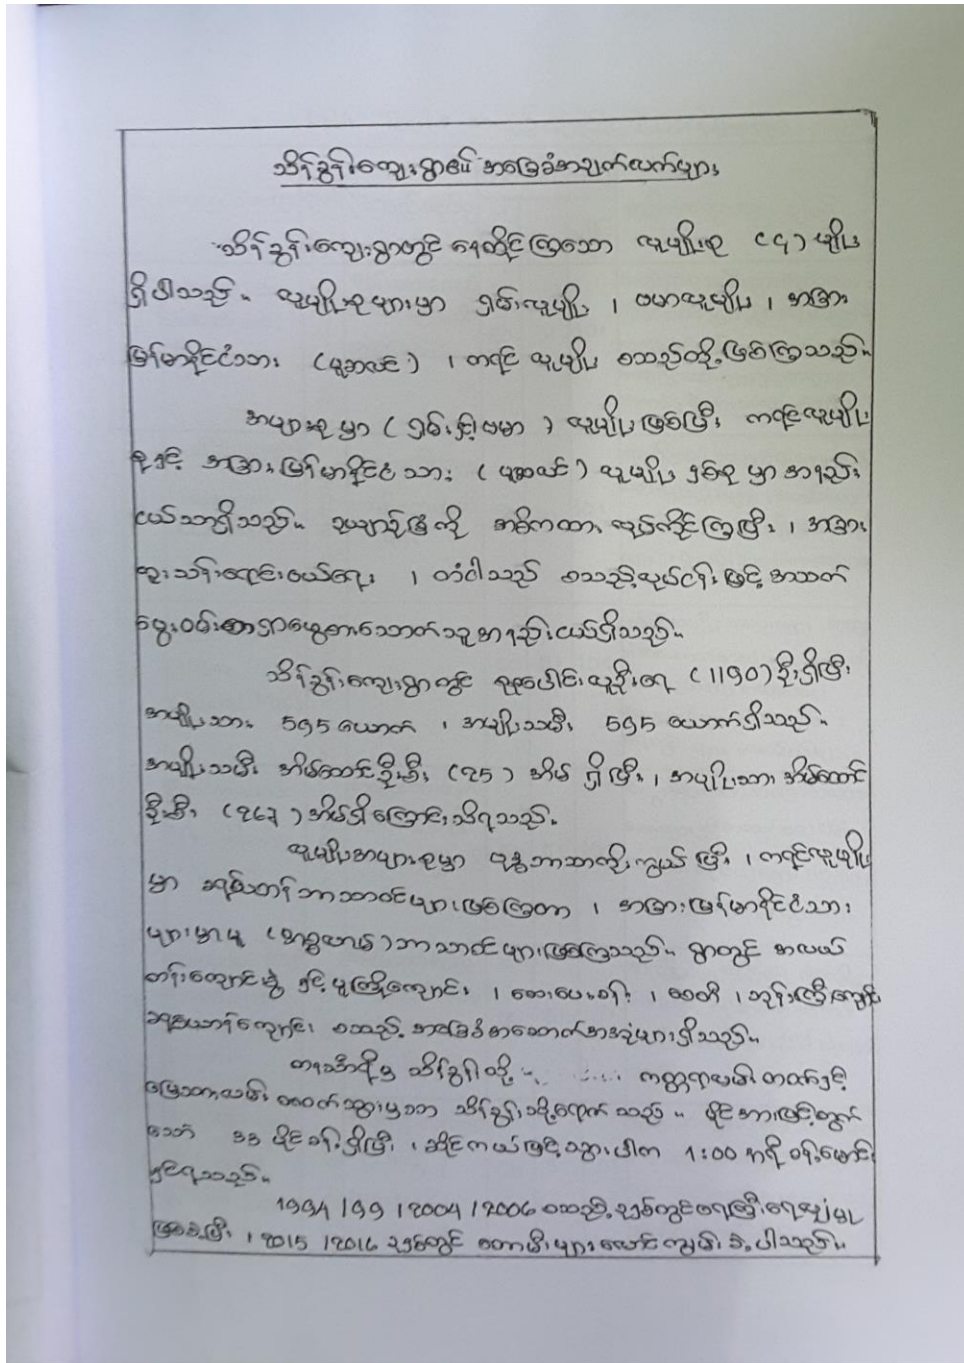 သိန်ခွန်ကျေးရွာ၏ အခြေခံအချက်လက်များ
သိန်ခွန်ကျေးရွာတွင် နေထိုင်ကြသော လူမျိုးစု (၄) မျိုး
ရှိပါသည်။ လူမျိုးစုများမှာ ရှမ်းလူမျိုး ၊ ဗမာလူမျိုး ၊ အခြား
မြန်မာနိုင်ငံသား (မူဆလင်) ၊ ကရင် လူမျိုး စသည်တို့ဖြစ်ကြသည်။
အများစုမှာ (ရှမ်းနှင့်ဗမာ) လူမျိုးဖြစ်ပြီး ကရင်လူမျိုး
စုနှင့် အခြားမြန်မာနိုင်ငံသား (မူဆလင်) လူမျိုး နှစ်စုမှာ အနည်း
ငယ်သာရှိသည်။ ဥယျာဉ်ခြံကို အဓိကထား လုပ်ကိုင်ကြပြီး ၊ အခြား
ကူးသန်းရောင်းဝယ်ရေး ၊ တံငါသည် စသည့်လုပ်ငန်းဖြင့် အသက်
မွေးဝမ်းစာရှာဖွေစားသောက်သူအနည်းငယ်ရှိသည်။
သိန်ခွန်ကျေးရွာတွင် စုစုပေါင်းလူဦးရေ (1190) ဦးရှိပြီး
အမျိုးသား 595 ယောက် ၊ အမျိုးသမီး 595 ယောက်ရှိသည်။
အမျိုးသမီး အိမ်ထောင်ဦးစီး (25) အိမ် ရှိပြီး ၊ အမျိုးသား အိမ်ထောင်
ဦးစီး (267) အိမ်ရှိကြောင်းသိရသည်။
လူမျိုးအများစုမှာ ဗုဒ္ဓဘာသာကိုးကွယ်ပြီး ၊ ကရင်လူမျိုး
မှာ ခရစ်ယာန်ဘာသာဝင်များဖြစ်ကြတာ ၊ အခြားမြန်မာနိုင်ငံသား
များမှာမူ (အစ္စလာမ်) ဘာသာဝင်များဖြစ်ကြသည်။ ရွာတွင် အလယ်
တန်းကျောင်းခွဲ နှင့်မူကြိုကျောင်း ၊ ဆေးပေးခန်း ၊ စေတီ ၊ ဘုန်းကြီးကျောင်း
ခရစ်ယာန်ကျောင်း စသည့် အခြေခံအဆောက်အအုံများရှိသည်။
တနင်္သာရီမှ သိန်ခွန်သို့ ကတ္တရာလမ်း တက်၍
မြေသားလမ်း ဖောက်သွားမှသာ သိန်ခွန်သို့ရောက်သည်။ မိုင်အားဖြင့်တွက်
သော် ၁၁ မိုင်ခန့်ရှိပြီး ၊ ဆိုင်ကယ်ဖြင့်သွားပါက 1:00 နာရီ ဝန်းမောင်း
နှင်ရသည်။
1994 / 99 / 2004 / 2006 စသည့်ညှစ်တွင်ရေကြီးရေလျှံမှု
ဖြစ်ခဲ့ပြီး ၊ 2015 / 2016 ညှစ်တွင် တောမီးများလောင်ကျွမ်းခဲ့ပါသည်။